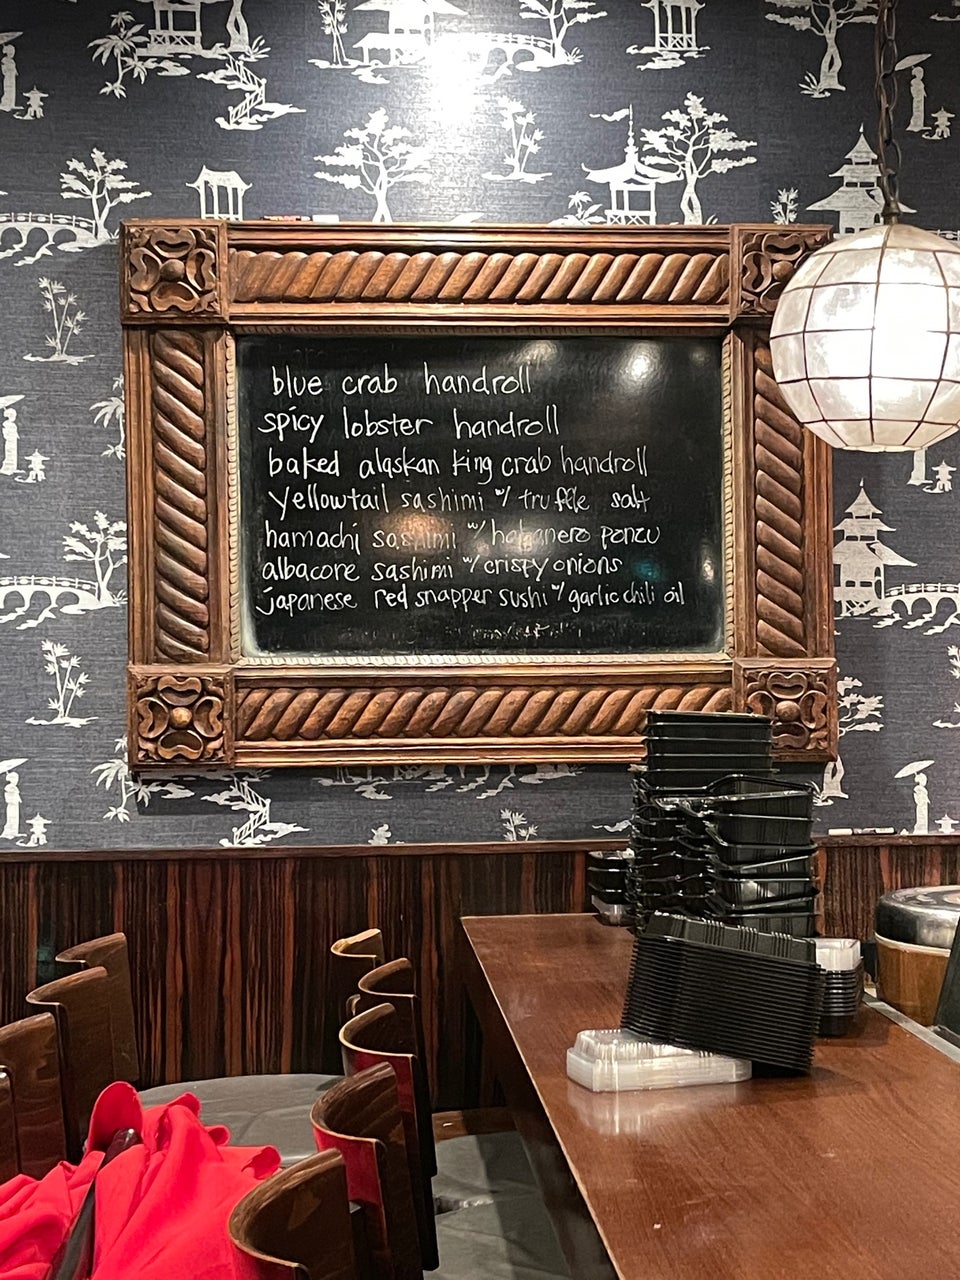 blue crab handroll
spicy lobster handroll
baked alaskan king crab handroll
yellowtail sashimi w/ truffle salt
hamachi sashimi w/ habanero ponzu
albacore sashimi w/ crispy onions
japanese red snapper sushi w/ garlic chili oil